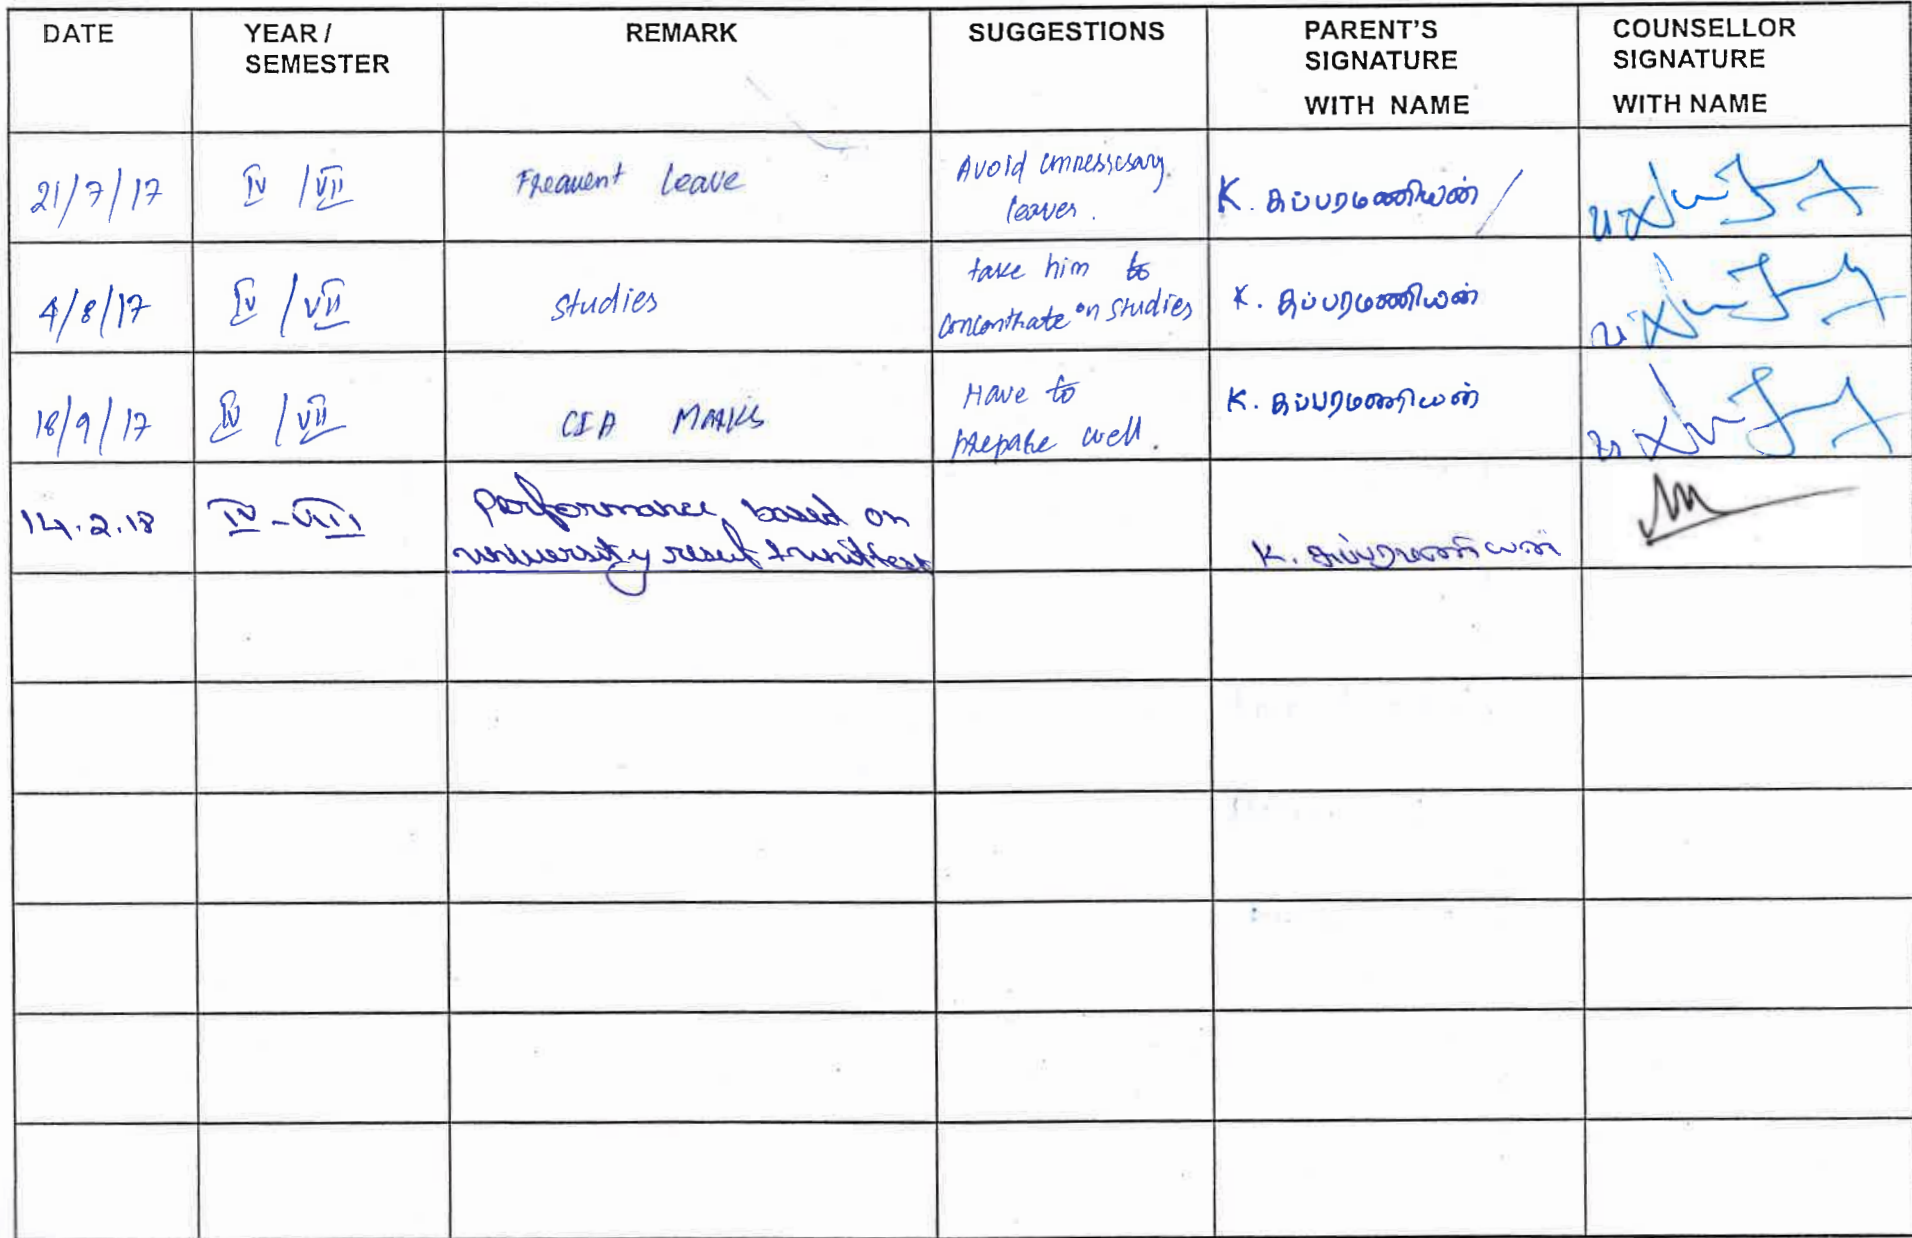 DATE
YEAR /
SEMESTER
REMARK
SUGGESTIONS
PARENT'S
SIGNATURE
WITH NAME
COUNSELLOR
SIGNATURE
WITH NAME
21/7/17
IV / VII
Frequent leave
Avoid unnessicsary
leaves.
K. சுப்பரமணியன்
4/8/17
IV / VII
studies
take him to
concontrate on studies
K. சுப்பரமணியன்
18/9/17
IV / VII
CIA Marks
Have to
prepare well.
K. சுப்பரமணியன்
14.2.18
IV - VIII
performance, based on
university result & unit test
K. சுப்பரமணியன்